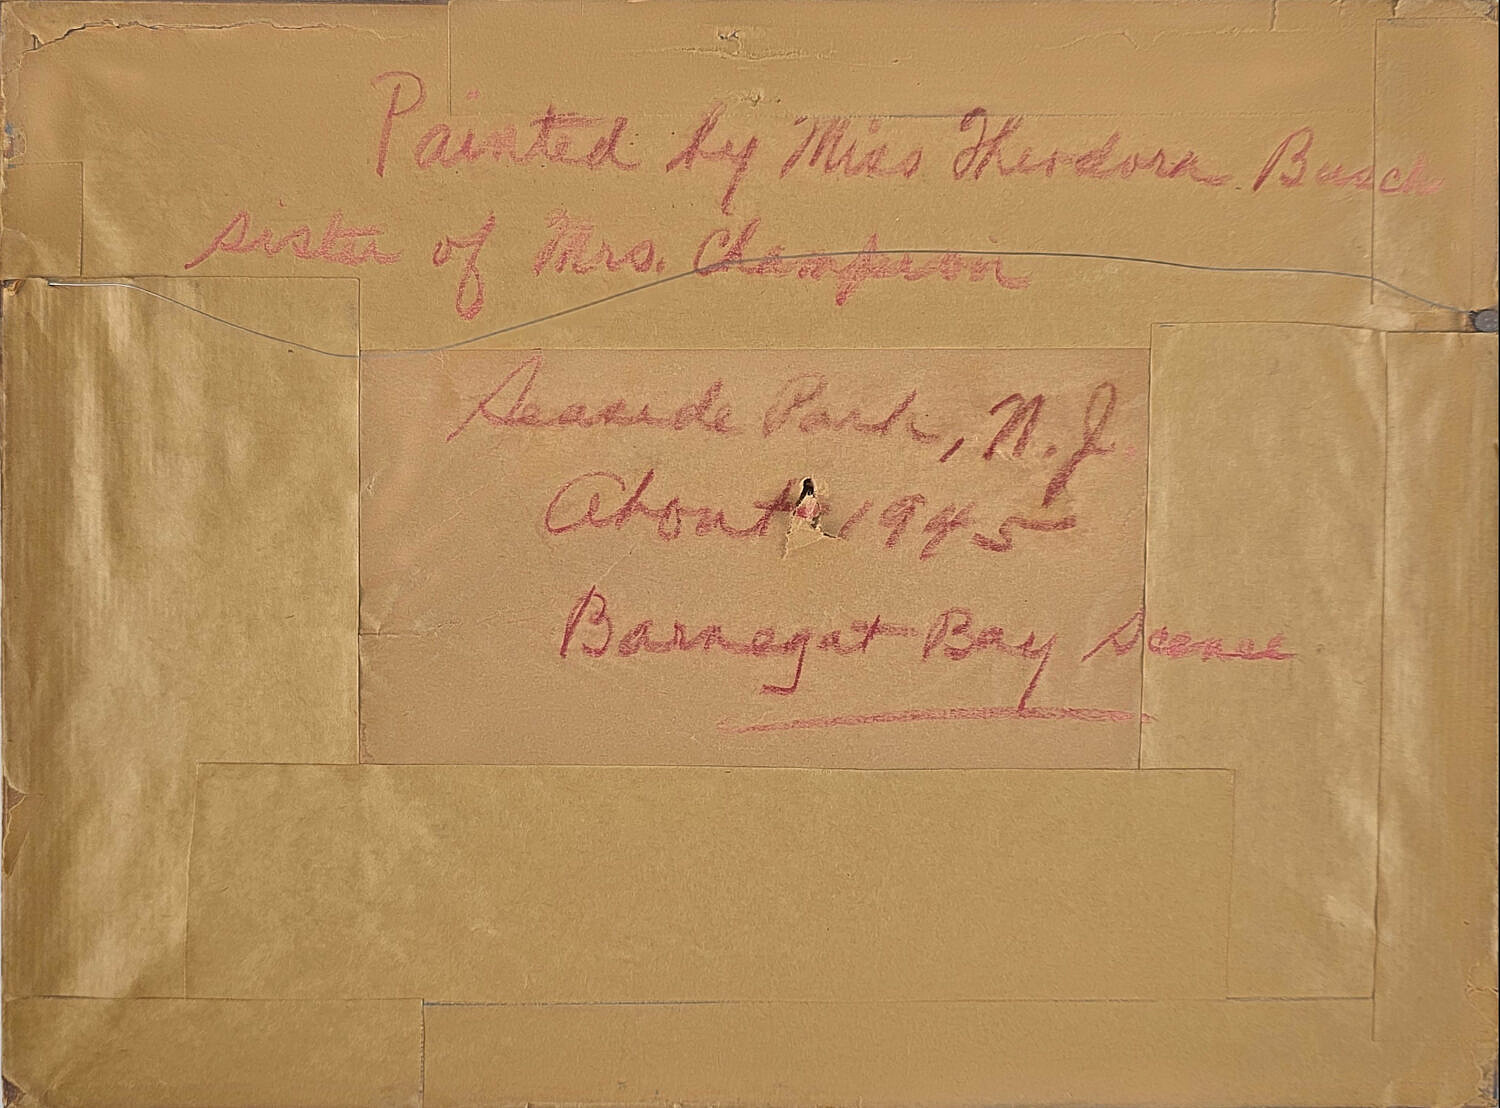 Painted by Miss Theodora Busch
sister of Mrs. Champion
Seaside Park, N.J.
About 1945
Barnegat Bay Scene